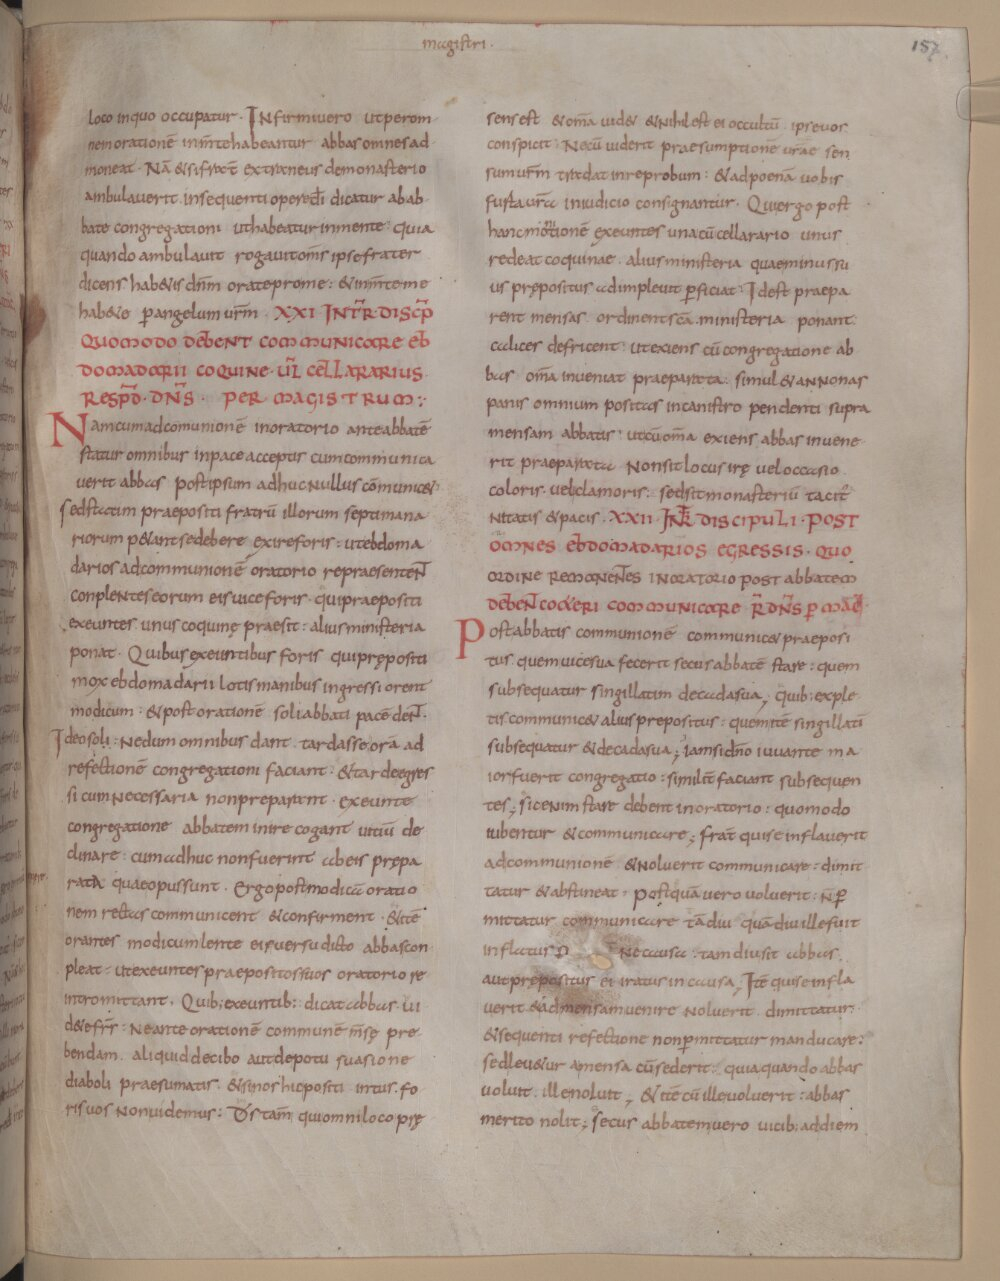 magistri.
157
loco inquo occupatur. Infirmi vero utperom
nem orationē inm̄tehabeantur abbas omnes ad
moneat. Nā & si frat̄ extraneus demonasterio
ambulaverit. insequenti opered̄i dicatur ab ab
bate congregationi uthabeatur inmente. quia
quando ambulavit rogavit om̄s ipse frater
dicens hab&is dn̄m orate prome: & inm̄teme
hab&e p angelum ur̄m. XXI INT̄R DISCP̄
QUOMODO DEBENT COMMUNICARE EB
DOMADARII COQUINE. UL̄ CELLARARIUS.
RESPD̄. DN̄S. PER MAGISTRUM:
Nam cum ad comunionē inoratorio ante abbatē
statur omnibus in pace acceptis cum communica
verit abbas postipsum adhuc nullus cōmunic&
sed statim praepositi fratrū illorum septimana
riorum p&ant se debere exire foris: ut ebdoma
darios ad communionē oratorio repraesentent
conplentes eorum eis vice foris. qui praepositi
exeuntes unus coquinę praesit: alius ministeria
ponat. Quibus exeuntibus foris qui prępositi
mox ebdomadarii lotis manibus ingressi orent
modicum: & post orationē soli abbati pacē dent.
Ideo soli: Ne dum omnibus dant. tardasse orā ad
refectionē congregationi faciant: & tarde egres
si cum necessaria non preparent. exeunte
congregatione abbatem inire cogant vitiū de
clinare: cum adhuc non fuerint ab eis prępa
rata quae opus sunt. Ergo post modicā oratio
nem rectas communicent & confirment. & itē
orantes modicum lente eis versu dicto abbas con
pleat. ut exeuntes praepositos suos oratorio re
intromittant. Quib; exeuntib: dicat abbas. Vi
d&e fr̄s: Ne ante orationē communē m̄sę pre
bendam. aliquid de cibo aut de potu suasione
diaboli praesumatis. & si nos hic positi intus. fo
ris vos non videmus: D̄s tam̄ qui omni loco prę
sens est & om̄a vid& & nihil est ei occultū. ipse vos
conspicit: Ne cū viderit praesumptionē ur̄ae sen
sum ur̄m tradat inreprobum: & ad poenā vobis
fusta ur̄a in iudicio consignantur. Qui ergo post
hanc monitionē exeuntes una cū cellarario unus
redeat coquinae. alius ministeria quae minus su
us prępositus adimplevit p̄ficiat: Id est praepa
rent mensas. ordinent sc̄a ministeria ponant
calices defricent: ut exiens cū congregatione ab
bas om̄a inveniat praeparata: simul & annonas
panis omnium positas incanistro pendenti supra
mensam abbatis: ut cū om̄a exiens abbas invene
rit praeparata Non sit locus irę vel occasio
coloris. vel clamoris: sed sit monasteriū tacit̄
nitatis & pacis. XXII. INT̄R DISCIPULI. POST
OMNES EBDOMADARIOS EGRESSIS. QUO
ORDINE REMANENTES INORATORIO POST ABBATEM
DEBENT COCETERI COMMUNICARE R̄ DN̄S P MAG̅:
Post abbatis communionē communic& praeposi
tus quem vice sua fecerit secus abbatē stare: quem
subsequatur singillatim decada sua; quib; exple
tis communic& alius prepositus: quem itē singillati
subsequatur & decada sua; iam si dn̄o iuvante ma
ior fuerit congregatio: similit̄ faciant subsequen
tes; sic enim stare debent inoratorio: quomodo
iubentur & communicare; frat̄ qui se inflaverit
ad communionē & noluerit communicare: dimit
tatur & abstineat: Postquā vero voluerit: n̄ p
mittatur communicare tādiu quādiu ille fuit
inflatus Ne causa: tamdiu sit abbas
aut prępositus ei iratus in causa; Itē qui se infla
verit & ad mensam venire noluerit. dimittatur:
& sequenti refectione non p̄mittatur manducare:
sed lev&ur a mensa cū sederit: quia quando abbas
voluit. ille noluit; & itē cū ille voluerit: abbas
merito nolit; secus abbatem vero vicib; ad diem